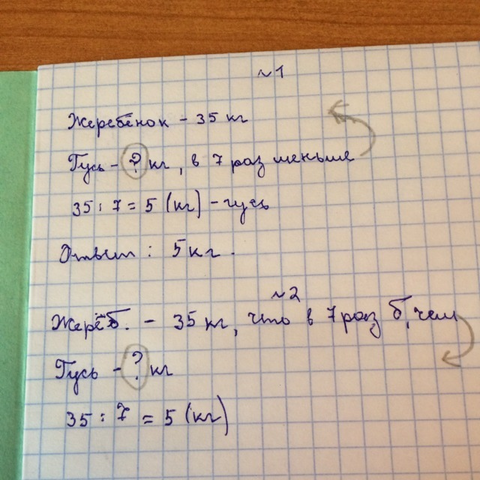 ~1
Жеребёнок - 35 кг
Гусь - ? кг, в 7 раз меньше
35 : 7 = 5 (кг) - гусь
Ответ : 5 кг.
~2
Жерёб. - 35 кг, что в 7 раз б, чем
Гусь - ? кг
35 : 7 = 5 (кг)